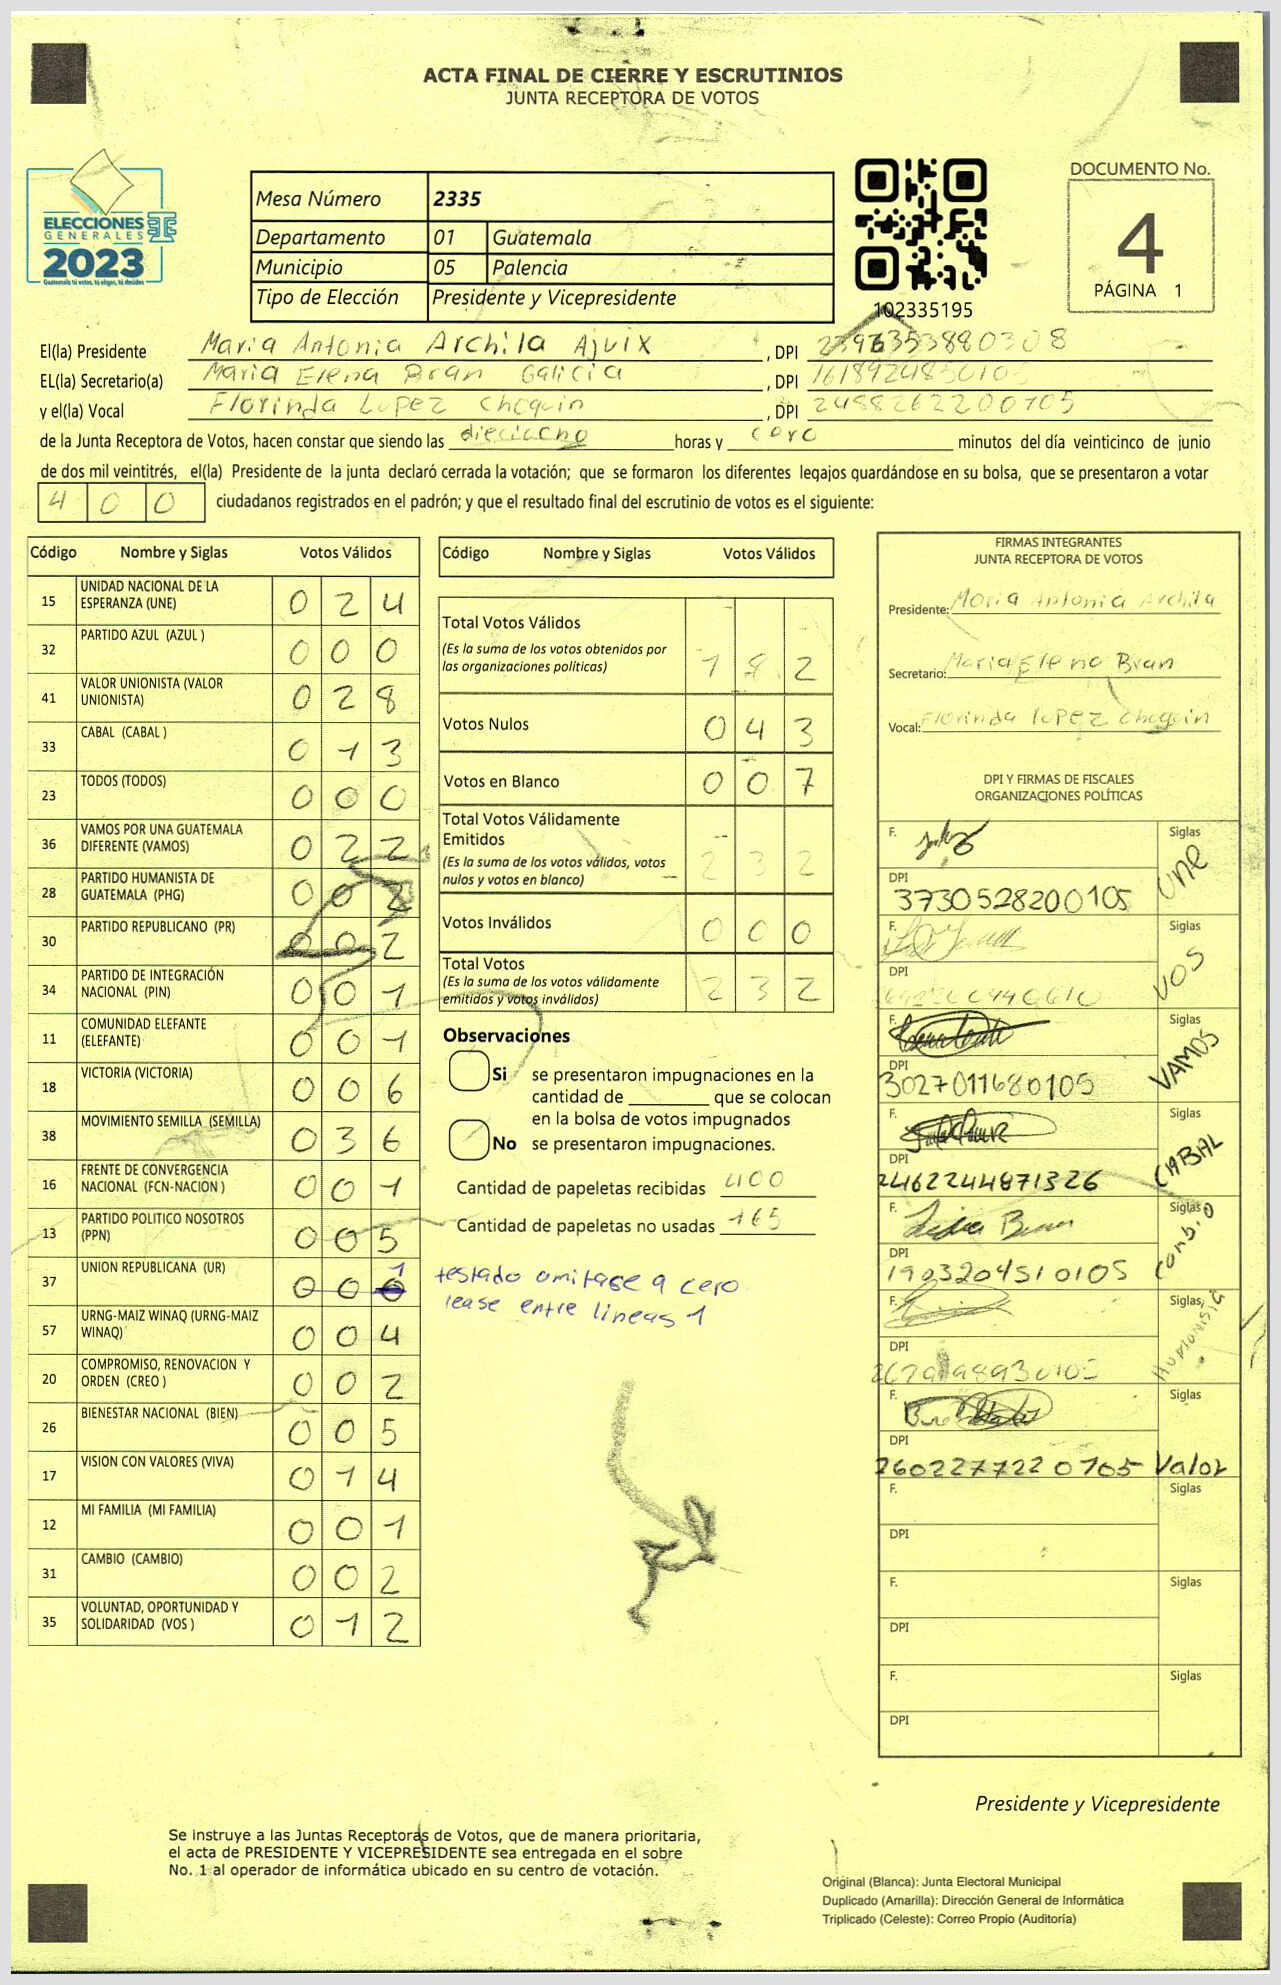 ACTA FINAL DE CIERRE Y ESCRUTINIOS
JUNTA RECEPTORA DE VOTOS
ELECCIONES
GENERALES
2023
Guatemala tú votas, tú eliges, tú decides
Mesa Número 2335
Departamento 01 Guatemala
Municipio 05 Palencia
Tipo de Elección Presidente y Vicepresidente
102335195
DOCUMENTO No.
4
PÁGINA 1
El(la) Presidente Maria Antonia Archila Ajuix , DPI
EL(la) Secretario(a) Maria Elena Bran Galicia , DPI
y el(la) Vocal Florinda Lopez Choquin , DPI 2488262200105
de la Junta Receptora de Votos, hacen constar que siendo las dieciocho horas y cero minutos del día veinticinco de junio
de dos mil veintitrés, el(la) Presidente de la junta declaró cerrada la votación; que se formaron los diferentes legajos quardándose en su bolsa, que se presentaron a votar
400 ciudadanos registrados en el padrón; y que el resultado final del escrutinio de votos es el siguiente:
Código Nombre y Siglas Votos Válidos
15 UNIDAD NACIONAL DE LA ESPERANZA (UNE) 0 2 4
32 PARTIDO AZUL (AZUL ) 0 0 0
41 VALOR UNIONISTA (VALOR UNIONISTA) 0 2 8
33 CABAL (CABAL ) 0 1 3
23 TODOS (TODOS) 0 0 0
36 VAMOS POR UNA GUATEMALA DIFERENTE (VAMOS) 0 2 2
28 PARTIDO HUMANISTA DE GUATEMALA (PHG) 0 0
30 PARTIDO REPUBLICANO (PR) 0 0 2
34 PARTIDO DE INTEGRACIÓN NACIONAL (PIN) 0 0 1
11 COMUNIDAD ELEFANTE (ELEFANTE) 0 0 1
18 VICTORIA (VICTORIA) 0 0 6
38 MOVIMIENTO SEMILLA (SEMILLA) 0 3 6
16 FRENTE DE CONVERGENCIA NACIONAL (FCN-NACION ) 0 0 1
13 PARTIDO POLITICO NOSOTROS (PPN) 0 0 5
37 UNION REPUBLICANA (UR) 0 0 0 1
57 URNG-MAIZ WINAQ (URNG-MAIZ WINAQ) 0 0 4
20 COMPROMISO, RENOVACION Y ORDEN (CREO ) 0 0 2
26 BIENESTAR NACIONAL (BIEN) 0 0 5
17 VISION CON VALORES (VIVA) 0 1 4
12 MI FAMILIA (MI FAMILIA) 0 0 1
31 CAMBIO (CAMBIO) 0 0 2
35 VOLUNTAD, OPORTUNIDAD Y SOLIDARIDAD (VOS ) 0 1 2
Código Nombre y Siglas Votos Válidos
Total Votos Válidos 1 8 2
(Es la suma de los votos obtenidos por
las organizaciones políticas)
Votos Nulos 0 4 3
Votos en Blanco 0 0 7
Total Votos Válidamente
Emitidos 2 3 2
(Es la suma de los votos válidos, votos
nulos y votos en blanco)
Votos Inválidos 0 0 0
Total Votos 2 3 2
(Es la suma de los votos válidamente
emitidos y votos inválidos)
Observaciones
Si se presentaron impugnaciones en la
cantidad de ________ que se colocan
en la bolsa de votos impugnados
No se presentaron impugnaciones.
Cantidad de papeletas recibidas 400
Cantidad de papeletas no usadas 165
testado omitase a cero
lease entre lineas 1
FIRMAS INTEGRANTES
JUNTA RECEPTORA DE VOTOS
Presidente: Maria Antonia Archila
Secretario: Maria Elena Bran
Vocal: Florinda Lopez Choquin
DPI Y FIRMAS DE FISCALES
ORGANIZACIONES POLÍTICAS
F. Siglas UNE
DPI 3730528200105
F. Siglas VOS
DPI
F. Siglas VAMOS
DPI 3027011680105
F. Siglas CABAL
DPI 2462244871326
F. Siglas Cambio
DPI 1903204510105
F. Siglas Humanista
DPI
F. Siglas Valor
DPI 2602277220105
F. Siglas
DPI
F. Siglas
DPI
F. Siglas
DPI
Presidente y Vicepresidente
Se instruye a las Juntas Receptoras de Votos, que de manera prioritaria,
el acta de PRESIDENTE Y VICEPRESIDENTE sea entregada en el sobre
No. 1 al operador de informática ubicado en su centro de votación.
Original (Blanca): Junta Electoral Municipal
Duplicado (Amarilla): Dirección General de Informática
Triplicado (Celeste): Correo Propio (Auditoría)